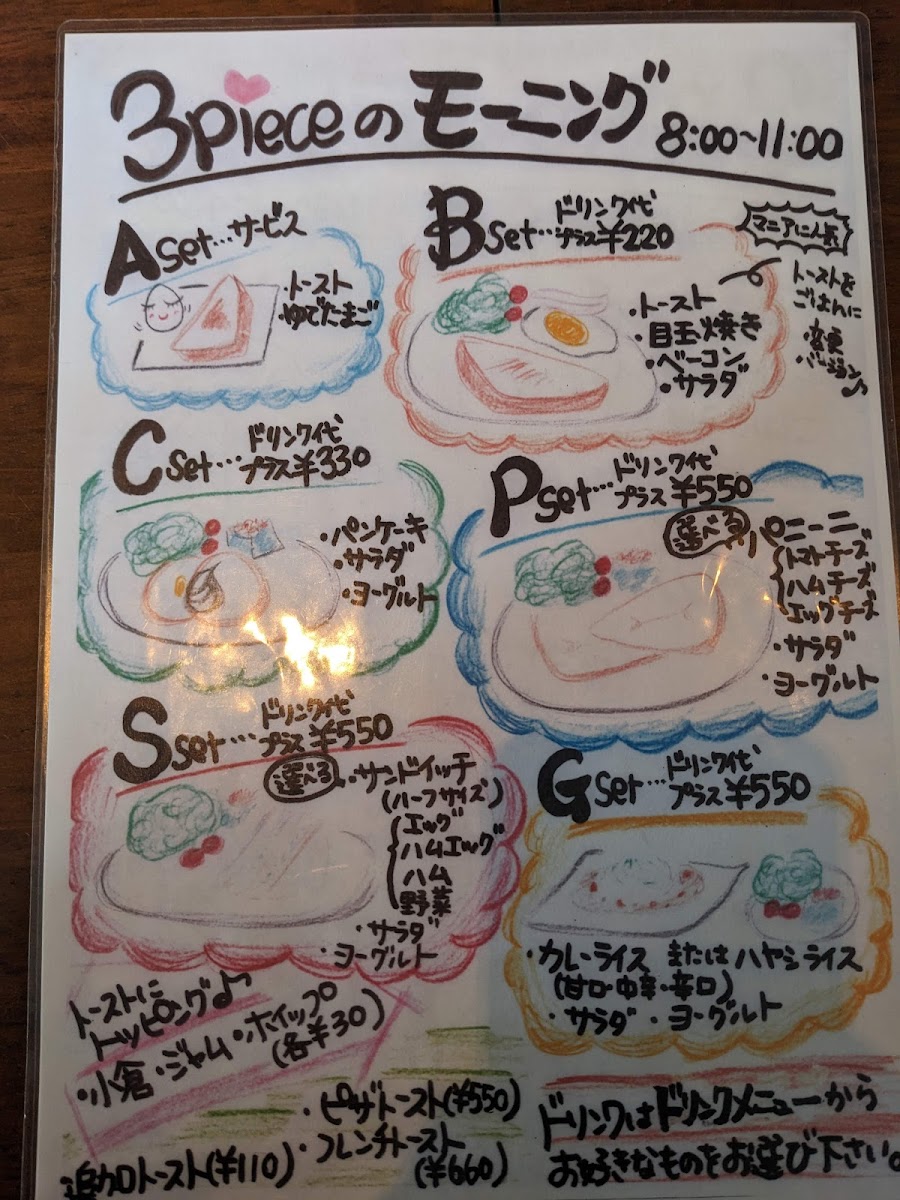 3pieceのモーニング 8:00~11:00
A set…サービス
・トースト
ゆでたまご
B set…ドリンク代
プラス¥220
・トースト
・目玉焼き
・ベーコン
・サラダ
マニアに人気
トーストを
ごはんに
変更
バージョン♪
C set…ドリンク代
プラス¥330
・パンケーキ
・サラダ
・ヨーグルト
P set…ドリンク代
プラス¥550
選べるパニーニ
トマトチーズ
ハムチーズ
エッグチーズ
・サラダ
・ヨーグルト
S set…ドリンク代
プラス¥550
選べる・サンドイッチ
(ハーフサイズ)
エッグ
ハムエッグ
ハム
野菜
・サラダ
・ヨーグルト
G set…ドリンク代
プラス¥550
・カレーライス または ハヤシライス
(甘口・中辛・辛口)
・サラダ ・ヨーグルト
トーストに
トッピング♪
・小倉・ジャム・ホイップ
(各¥30)
・ピザトースト(¥550)
追加トースト(¥110)
・フレンチトースト
(¥660)
ドリンクはドリンクメニューから
お好きなものをお選び下さい。